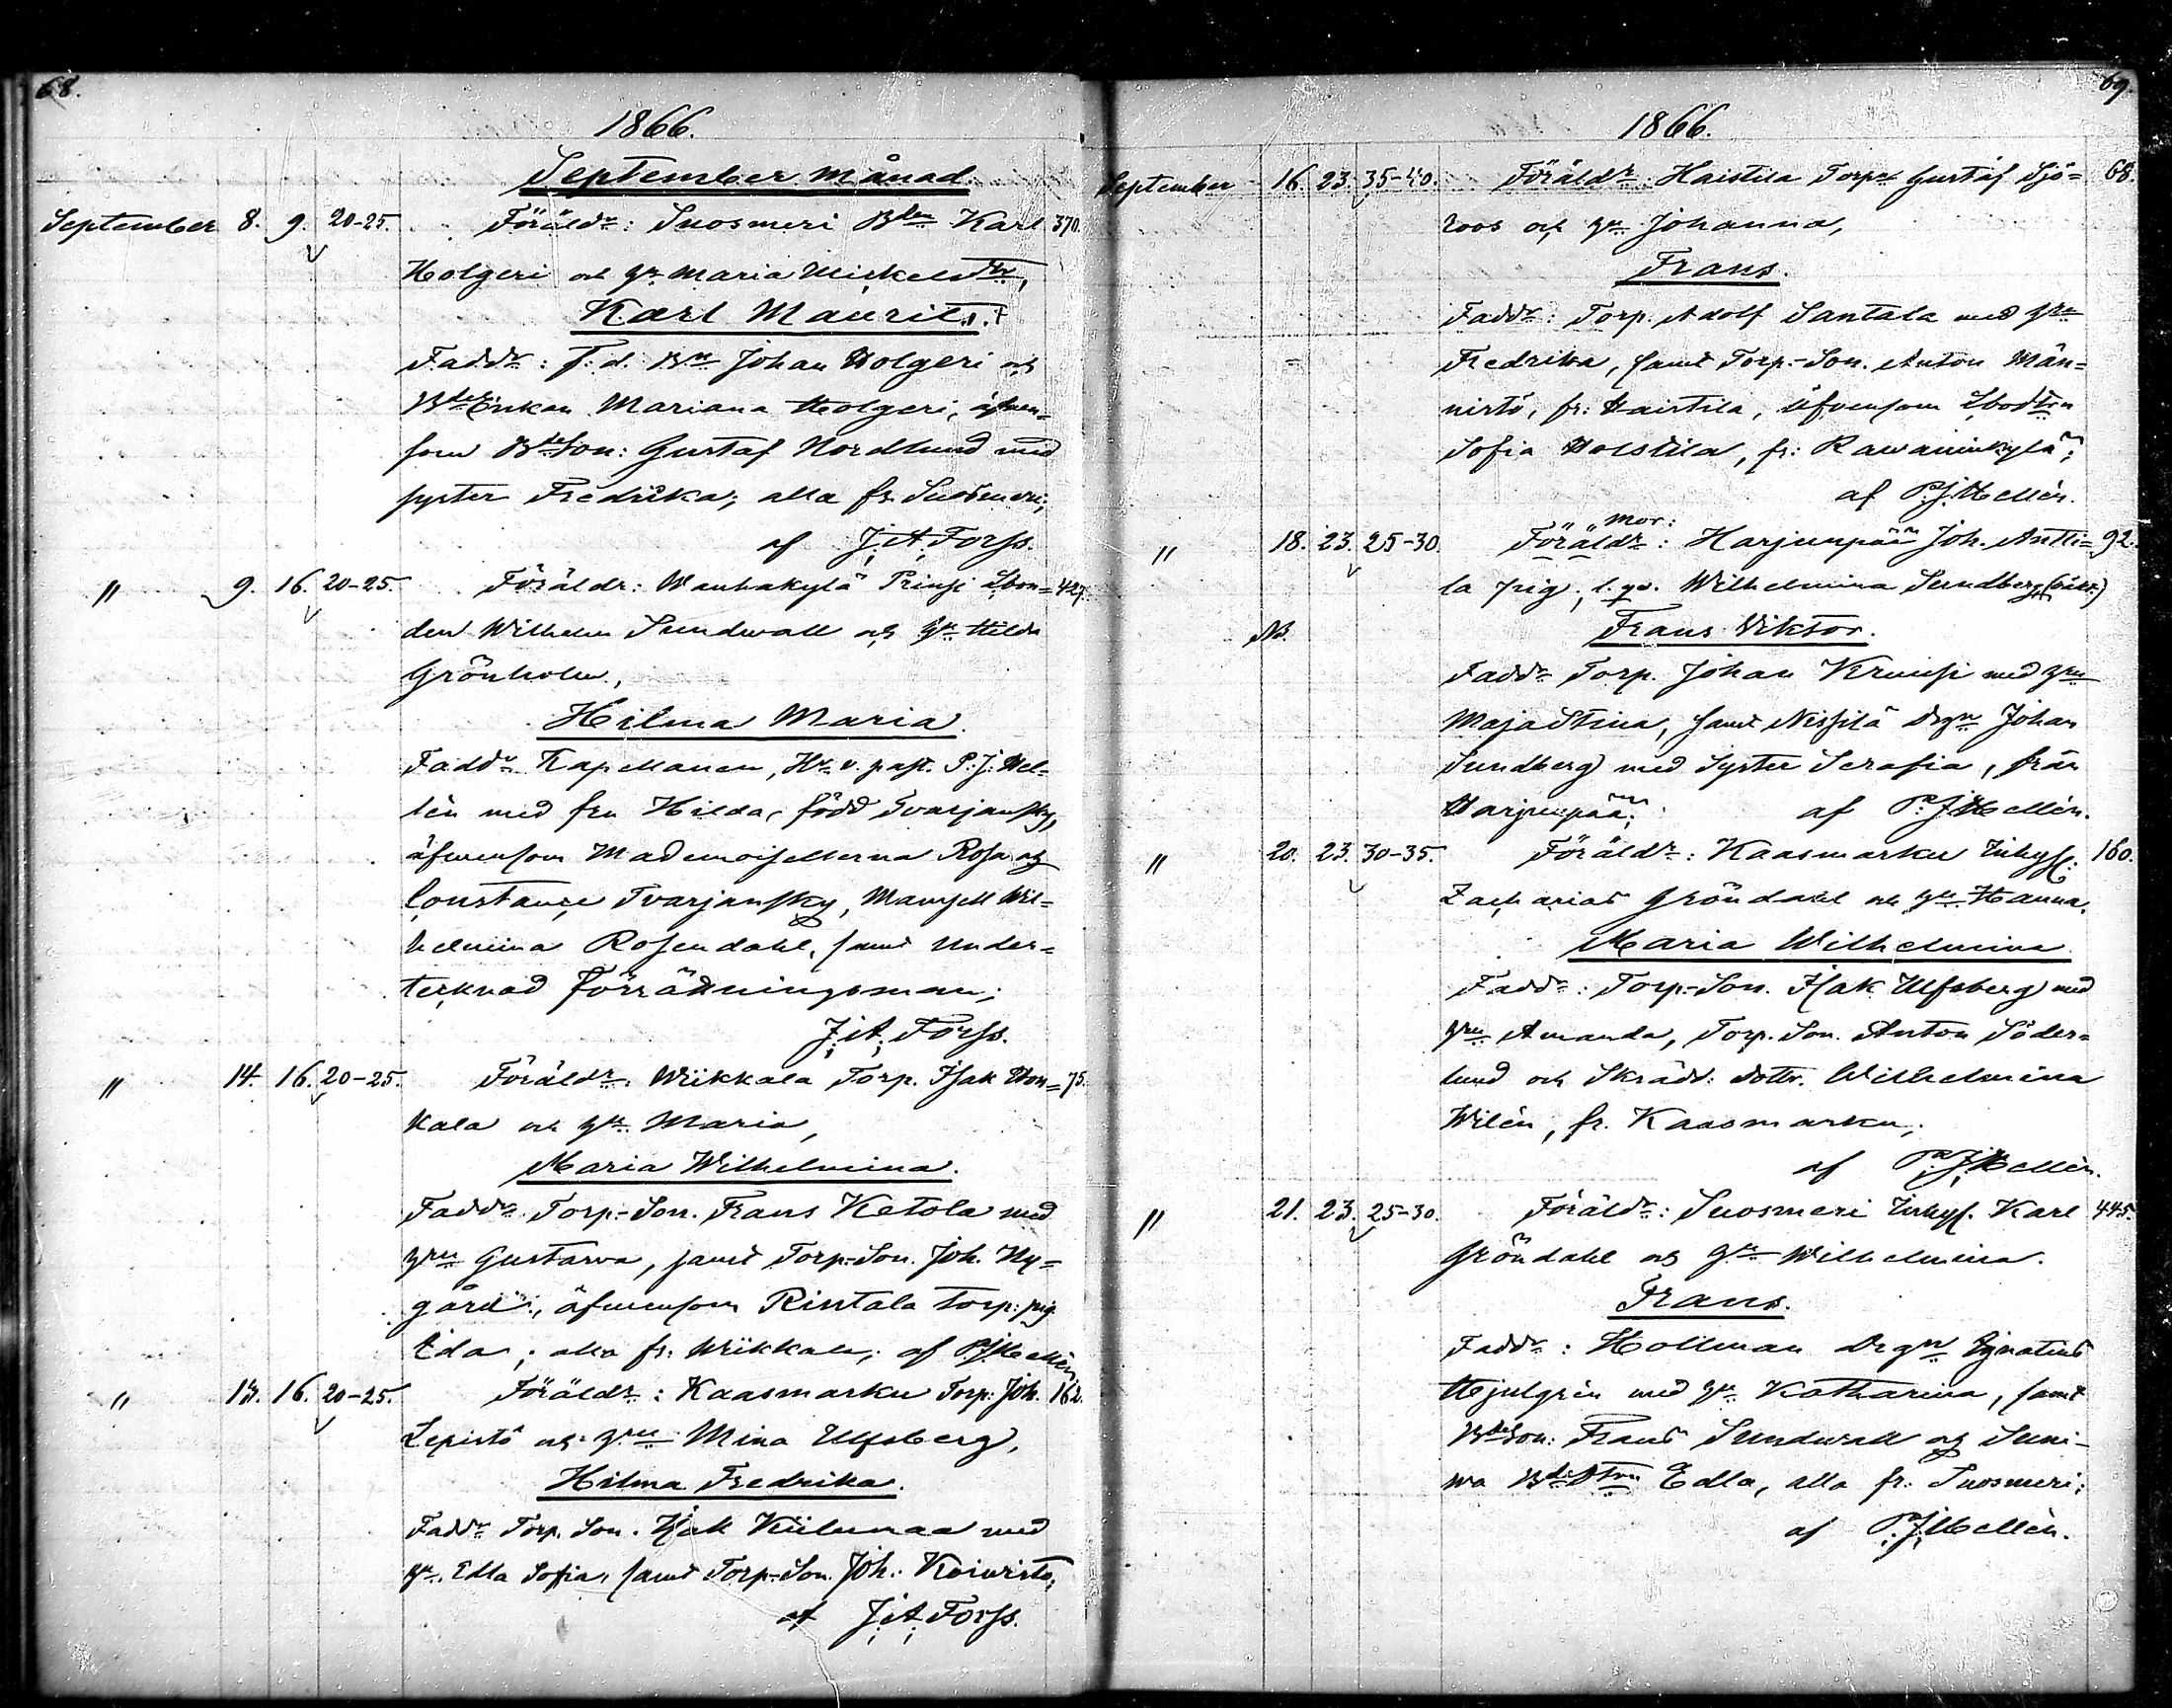 68.
1866.
September månad.
September 8. 9. 20-25. Föräldr: Suosmeri Bdn Karl 370.
Holgeri och hu Maria Mickelsdtr,
Karl Maurits. †
Faddr: f. d. Bn Johan Holgeri och
BdeEnkan Mariana Holgeri, äfven-
som BdeSon: Gustaf Nordlund med
syster Fredrika; alla fr. Suosmeri;
af J. A. Forss.
" 9. 16. 20-25. Föräldr: Wanhakylä Prinsi Lbon- 427.
den Wilhelm Sundwall och hu Hilda
Grönholm,
Hilma Maria.
Faddr Kapellanen, Hr v. past. P. J. Hel-
lén med fru Hilda, född Tvarjansky,
äfvensom Mademoisellerna Rosa och
Constance Tvarjansky, Mamsell Wil-
helmina Rosendahl, samt Under-
tecknad Förrättningsman;
J. A. Forss.
" 14. 16. 20-25. Föräldr: Wiikkala Torp. Isak Hon- 75.
kala och hu Maria,
Maria Wilhelmina.
Faddr Torp.-Son. Frans Ketola med
hru Gustava, samt Torp.-Son. Joh. Ny-
gård, äfvensom Rintala torp: pig.
Eda; alla fr. Wiikkala; af P. J. Hellén
" 15. 16. 20-25. Föräldr: Kaasmarku Torp: Joh. 162.
Lepistö och hru Mina Ulfsberg,
Hilma Fredrika.
Faddr Torp. Son. Isak Kiilunmaa med
hu Edla Sofia, samt Torp.-Son. Joh. Koivisto;
af J. A. Forss.
69.
1866.
September 16. 23. 35-40. Föräldr: Haistila Torpn Gustaf Sjö- 68.
roos och hu Johanna,
Frans.
Faddr: Torp. Adolf Santala med hru
Fredrika, samt Torp.-Son. Anton Män-
nistö, fr: Haistila, äfvensom Lbodtrn
Sofia Holstila, fr: Rawaninkylä;
af P. J. Hellén.
mor:
" 18. 23. 25-30. Föräldr: Harjunpää Joh. Antti- 92.
la pig, l. qv. Wilhelmina Sundberg
NB. Frans Viktor.
Faddr Torp. Johan Kruusi med hru
Maja Stina, samt Nissilä drgn Johan
Sundberg med Syster Serafia, från
Harjunpää; af P. J. Hellén.
" 20. 23. 30-35. Föräldr: Kaasmarku Inhys: 160.
Zacharias Gröndahl och hu Hanna.
Maria Wilhelmina
Faddr: Torp.-Son. Isak Ulfsberg med
hru Amanda, Torp. Son. Anton Söder-
lund och Skrädd: dottr. Wilhelmina
Wilén, fr. Kaasmarku;
af P. J. Hellén.
" 21. 23. 25-30. Föräldr: Suosmeri Inhys. Karl 445.
Gröndahl och hu Wilhelmina.
Frans.
Faddr: Hollman Drgn Ignatius
Hjulgrén med hu Katharina, samt
BdeSon: Frans Sundwall och Suni-
wa Bde Dtrn Edla, alla fr. Suosmeri;
af P. J. Hellén.